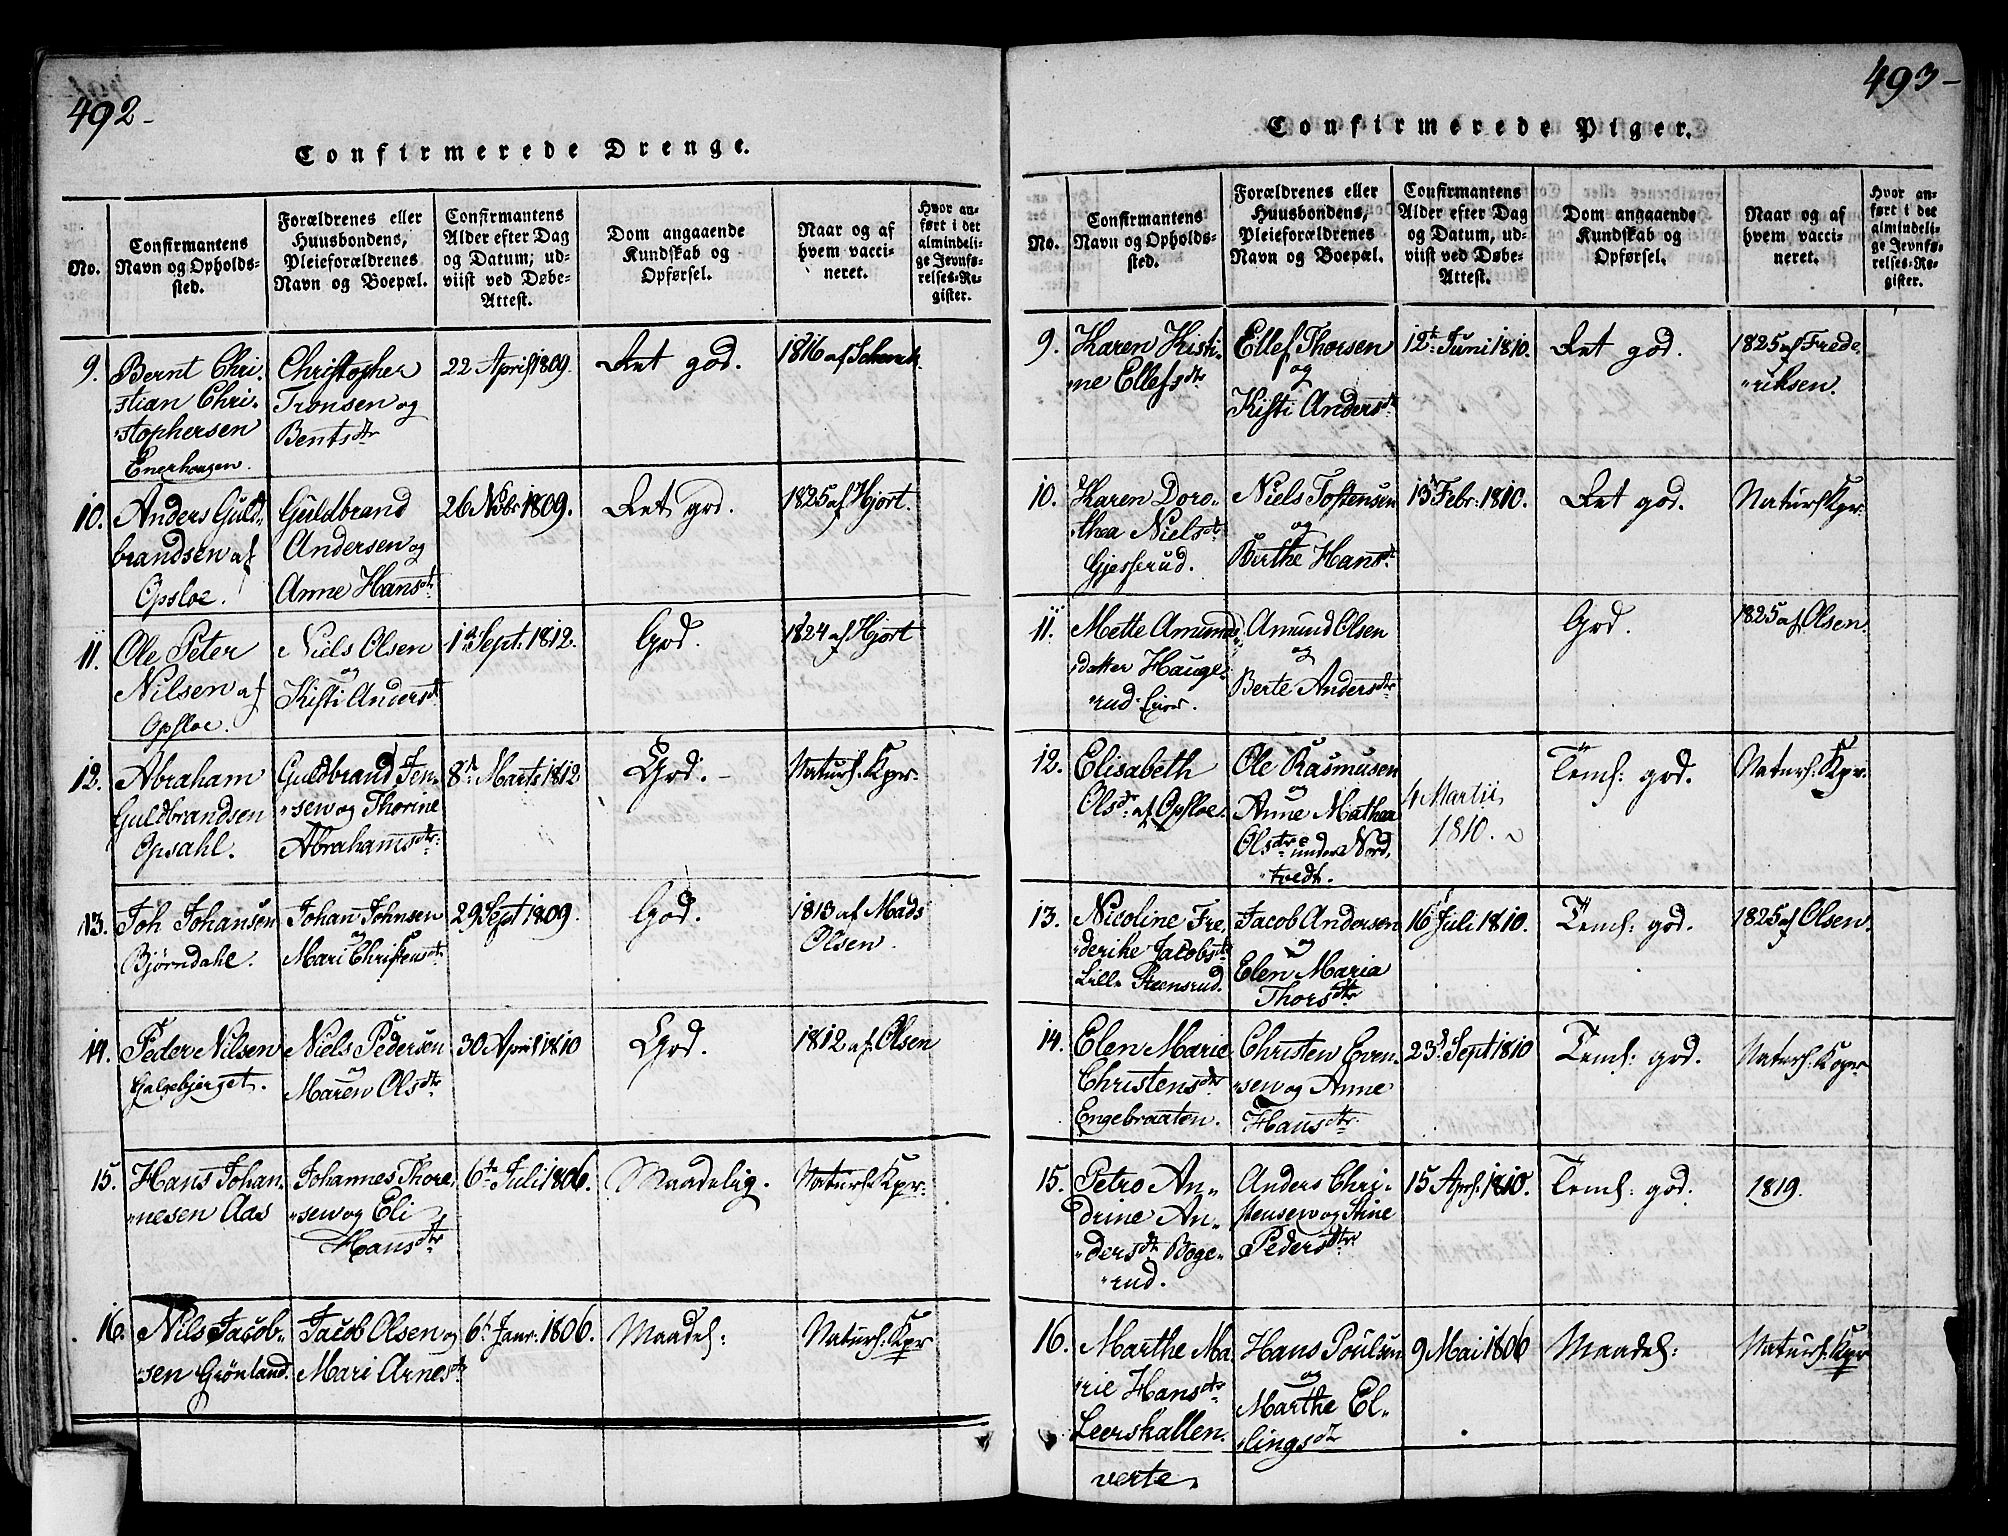 492-
Confirmerede Drenge.
No.
Confirmantens
Navn og Opholds-
sted.
Forældrenes eller
Huusbondens,
Pleieforældrenes
Navn og Boepæl.
Confirmantens
Alder efter Dag
og Datum, ud-
viist ved Døbe-
Attest.
Dom angaaende
Kundskab og
Opførsel.
Naar og af
hvem vacci-
neret.
Hvor an-
ført i det
almindeli-
ge Jevnfø-
relses-Re-
gister.
9.
Bernt Chri-
stian Chri-
stophersen
Enerhougen.
Christopher
Tronsen og
Bentsdtr
22 April 1809.
Ret god.
1816 af Schenck
10.
Anders Guld-
brandsen af
Opsloe.
Guldbrand
Andersen og
Anne Hansdtr
26 Nobr 1809.
Ret god.
1825 af Hjort.
11.
Ole Peter
Nilsen af
Opsloe.
Niels Olsen
og
Kisti Andersdtr
1ste Sept. 1812.
God.
1824 af Hjort
12.
Abraham
Guldbrandsen
Opsahl.
Guldbrand Jen-
sen og Thorine
Abrahamsdtr:
8de Marts 1812
God. -
Naturl. Kpr:
13.
Joh Johansen
Bjørndahl.
Johan Johnsen
og
Mari Christensdtr
29 Sept 1809.
God.
1813 af Mads
Olsen.
14.
Peder Nilsen
Galgebjerget.
Niels Pedersen
og
Maren Olsdtr
30 April 1810
God.
1812 af Olsen
15.
Hans Johan-
nesen Aas
Johannes Thore-
sen og Eli
Hansdtr
6te Juli 1806.
Maadelig.
Naturl. Kpr:
16.
Nils Jacob-
sen Grønland.
Jacob Olsen og
Mari Arnesdtr
6t Janr. 1806.
Maadel:
Naturl. Kpr
493-
Confirmerede Piger.
No.
Confirmantens
Navn og Opholds-
sted.
Forældrenes eller
Huusbondens,
Pleieforældrenes
Navn og Boepæl.
Confirmantens
Alder efter Dag
og Datum, ud-
viist ved Døbe-
Attest.
Dom angaaende
Kundskab og
Opførsel.
Naar og af
hvem vacci-
neret.
Hvor an-
ført i det
almindeli-
ge Jevnfø-
relses-Re-
gister.
9.
Karen Kisti-
ne Ellefsdtr
Ellef Thorsen
og
Kisti Andersdtr
12te Juni 1810.
Ret god.
1825 af Frede-
riksen.
10.
Karen Doro-
thea Nielsdtr
Gjesserud.
Niels Tostensen
og
Berthe Hansdtr
13 Febr: 1810.
Ret god.
Naturl. Kpr:
11.
Mette Amunds-
datter Hauge-
rud
Amund Olsen
og
Berte Andersdtr
God.
1825 af Olsen.
12.
Elisabeth
Olsdtr af Opsloe.
Ole Rasmusen
og
Anne Mathea
Olsdtr under Nord-
tvedt.
4 Martii
1810.
Teml: god.
Naturl. Kpr.
13.
Nicoline Fre-
derike Jacobsdtr
Lille Steensrud.
Jacob Andersen
og
Elen Maria
Thorsdtr
16 Juli 1810.
Teml: god.
1825 af Olsen.
14.
Elen Marie
Christensdtr
Engebraaten.
Christen Even-
sen og Anne
Hansdtr
23d Sept 1810
Teml: god.
Naturl: Kopr
15.
Petro An-
drine An-
dersdtr Boge-
rud.
Anders Chri-
stensen og Stine
Pedersdtr
15 Aprl. 1810.
Teml: god.
1819.
16.
Marthe Ma-
rie Hansdtr
Leerskallen.
Hans Poulsen
og
Marthe El-
lingsdtr
9 Mai 1806
Maadel:
Naturl. Kpr
verte.